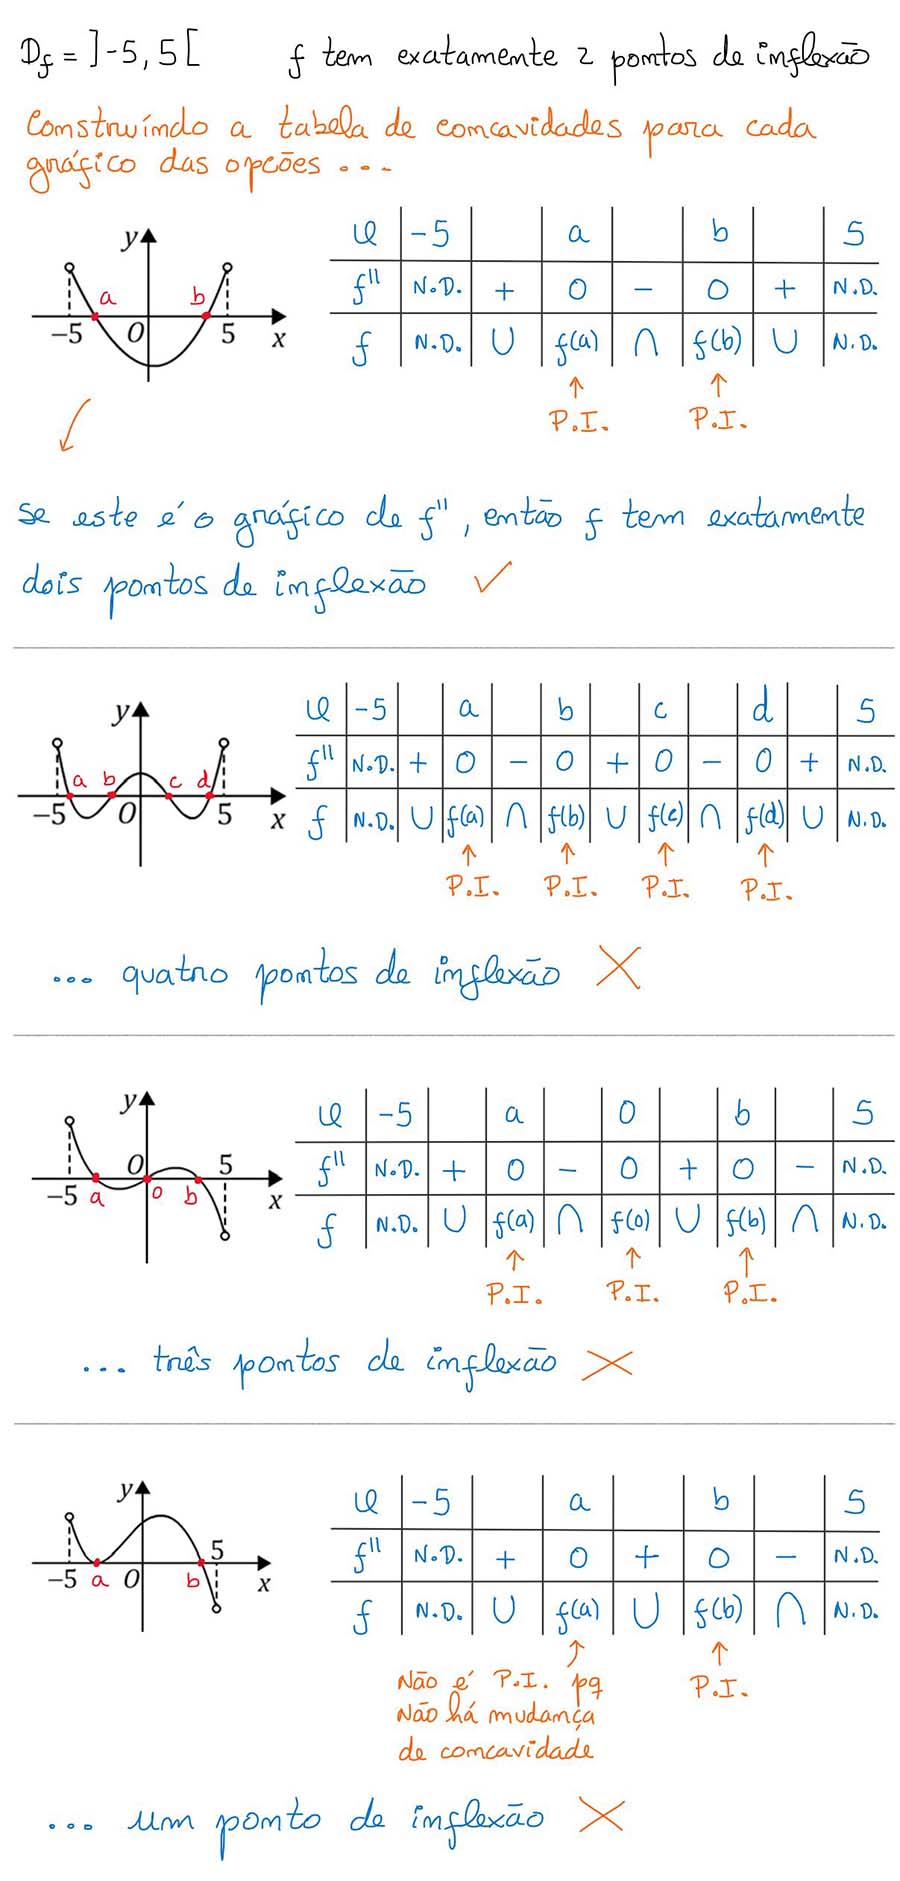 Df = ]-5, 5[ f tem exatamente 2 pontos de inflexão
Construíndo a tabela de concavidades para cada
gráfico das opções ...
y
a b
-5 0 5 x
x -5 a b 5
f'' N.D. + 0 - 0 + N.D.
f N.D. ∪ f(a) ∩ f(b) ∪ N.D.
↑ ↑
P.I. P.I.
se este é o gráfico de f'', então f tem exatamente
dois pontos de inflexão ✓
y
a b c d
-5 0 5 x
x -5 a b c d 5
f'' N.D. + 0 - 0 + 0 - 0 + N.D.
f N.D. ∪ f(a) ∩ f(b) ∪ f(c) ∩ f(d) ∪ N.D.
↑ ↑ ↑ ↑
P.I. P.I. P.I. P.I.
... quatro pontos de inflexão ✗
y
0 5
-5 a 0 b x
x -5 a 0 b 5
f'' N.D. + 0 - 0 + 0 - N.D.
f N.D. ∪ f(a) ∩ f(0) ∪ f(b) ∩ N.D.
↑ ↑ ↑
P.I. P.I. P.I.
... três pontos de inflexão ✗
y
5
-5 a 0 b x
x -5 a b 5
f'' N.D. + 0 + 0 - N.D.
f N.D. ∪ f(a) ∪ f(b) ∩ N.D.
↑ ↑
Não é P.I. pq P.I.
Não há mudança
de concavidade
... um ponto de inflexão ✗